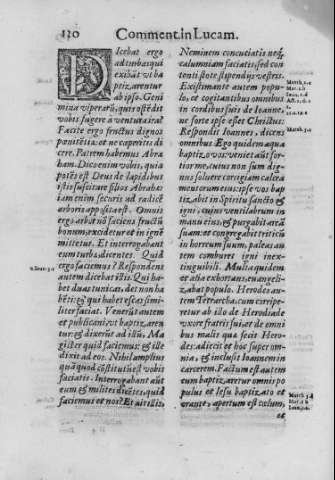 130 Comment. in Lucam.
DIcebat ergo
ad turbas qui
exibāt vt ba
ptizarentur
ab ipso. Geni
mina viperarū, quis ostēdit
vobis fugere à ventura ira?
Facite ergo fructus dignos
pœnitētiæ: et ne cœperitis di
cere. Patrem habemus Abra
ham. Dico enim vobis, quia
potēs est Deus de lapidibus
istis suscitare filios Abrahæ:
iam enim securis ad radicē
arboris apposita est. Omnis
ergo arbor nō faciens fructū
bonum, excidetur et in ignē
mittetur. Et interrogabant
eum turbæ dicentes. Quid
ergo faciemus? Respondens
autem dicebat illis. Qui ha
bet duas tunicas, det non ha
bēti: & qui habet escas simi
liter faciat. Venerūt autem
et publicani, vt baptizaren
tur: & dixerūt ad illū. Ma
gister quid faciemus: & ille
dixit ad eos. Nihil amplius
quā quod cōstitutū est vobis
faciatis. Interrogabant aūt
eum & milites dicētes, quid
faciemus et nos? Et ait illis,
Neminem concutiatis neq;
calumniam faciatis, sed con
tenti stote stipendijs vestris.
Existimante autem popu-
lo, et cogitantibus omnibus
in cordibus suis de Ioanne,
ne forte ipse esset Christus.
Respondit Ioannes, dicens
omnibus Ego quidem aqua
baptizo vos: veniet aūt for
tior me, cuius non sum dig-
nus soluere corrigiam calcea
mentorum eius: ipse vos bap
tizabit in Spiritu sancto &
igni, cuius ventilabrum in
manu eius, & purgabit are ā
suam: et congregabit triticū
in horreum suum, paleas au
tem comburet igni inex-
tinguibili. Multa quidem
et alia exhortans, euangeli-
zabat populo. Herodes aut-
tem Tetrarcha, cum corripe
retur ab illo de Herodiade
vxore fratris sui, et de omni
bus malis quæ fecit Hero-
des: adiecit et hoc super om-
nia, & inclusit Ioannem in
carcerem. Factum est autem
cum baptizaretur omnis po
pulus et Iesu baptizato et
orante, apertum est cœlum,
et